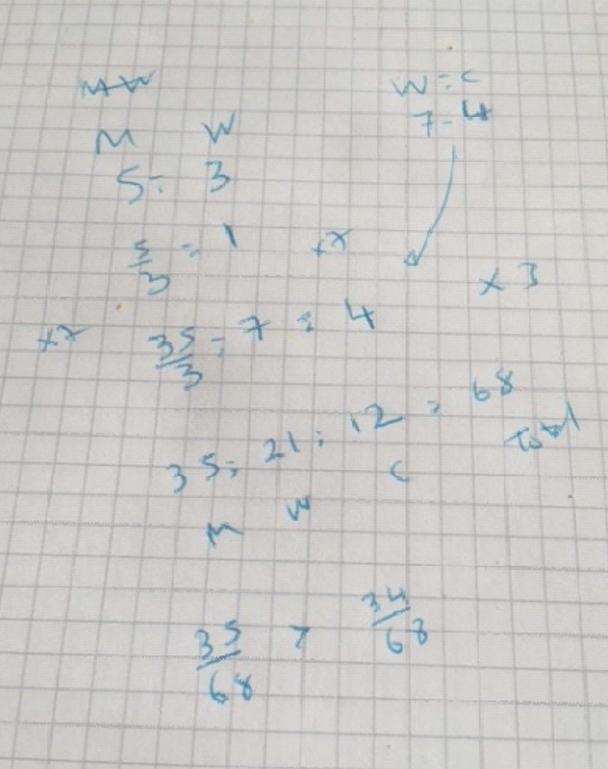 MW
W : C
7 : 4
M W
5 : 3
5/3 : 1 ×7
× 3
×7 35/3 : 7 : 4
35 : 21 : 12 = 68 Total
M W C
35/68 > 34/68